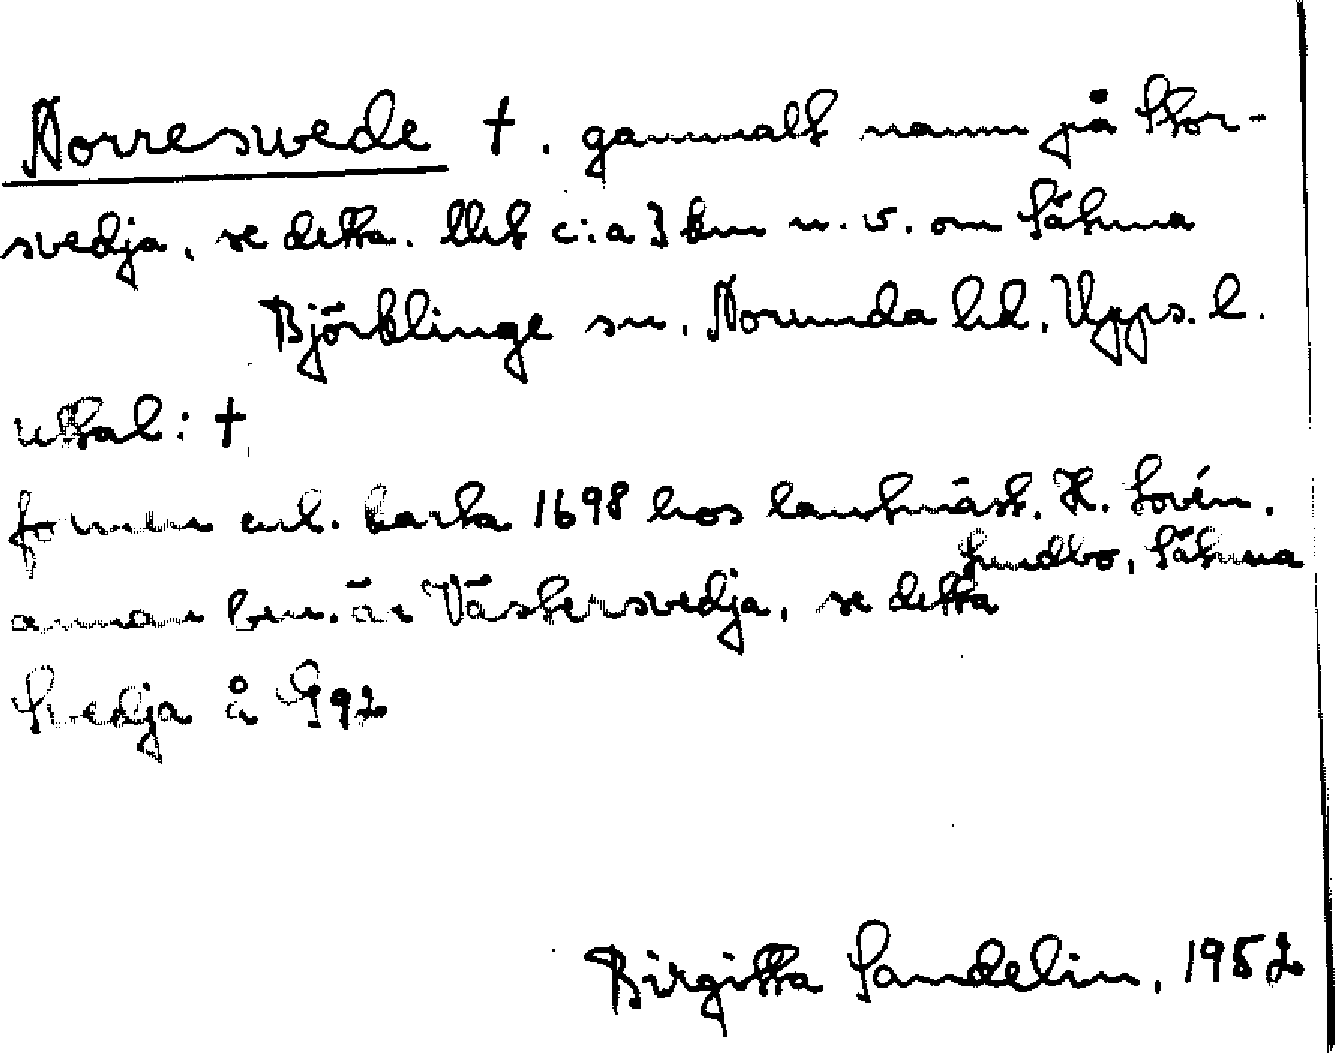 Norreswede †. gammalt namn på Stor-
svedja, se detta. c:a 3 km n.v. om Sätuna
Björklinge sn. Norunda hd. Upps. l.
uttal: †
formen enl. karta 1698 hos lantmäst. H. Lovén.
Lundbo, Sätuna
annan ben. är Västersvedja, se detta
Svedja å G 92
Birgitta Sandelin, 1952